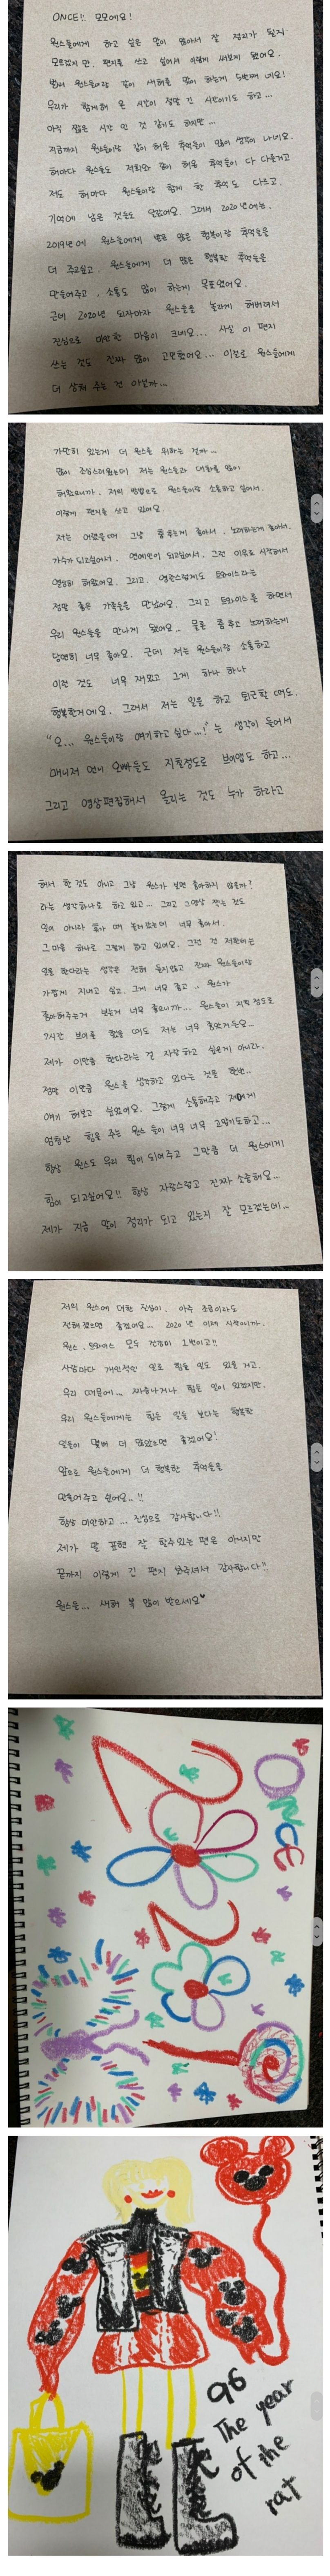 ONCE!! 모모에요!
원스들에게 하고 싶은 말이 많아서 잘 정리가 될지
모르겠지만, 편지를 쓰고 싶어서 이렇게 써보게 됐어요.
벌써 원스들이랑 같이 새해를 맞이 하는게 5번째네요!
우리가 함께해 온 시간이 정말 긴 시간이기도 하고...
아직 짧은 시간 인 것 같기도 하지만...
지금까지 원스들이랑 같이 해온 추억들이 많이 생각이 나네요.
해마다 원스들도 저희와 같이 해온 추억들이 다 다를거고
저도 해마다 원스들이랑 함께 한 추억도 다르고.
기억에 남은 것들도 많았어요. 그래서 2020년에는.
2019년에 원스들에게 받은 많은 행복이랑 추억들을
더 주고싶고. 원스들에게 더 많은 행복한 추억들을
만들어주고. 소통도 많이 하는게 목표였어요.
근데 2020년 되자마자 원스들을 놀라게 해버려서
진심으로 미안한 마음이 크네요... 사실 이 편지
쓰는 것도 진짜 많이 고민했어요... 이걸로 원스들에게
더 상처 주는 건 아닐까...
가만히 있는게 더 원스를 위하는 걸까...
많이 조심스러웠는데 저는 원스들과 대화를 많이
해왔으니까. 저의 방법으로 원스들이랑 소통하고 싶어서.
이렇게 편지를 쓰고 있어요.
저는 어렸을때 그냥 춤추는게 좋아서. 노래하는게 좋아서.
가수가 되고싶어서. 연예인이 되고싶어서. 그런 이유로 시작해서
열심히 해왔어요. 그리고. 영광스럽게도 트와이스라는
정말 좋은 가족들을 만났어요. 그리고 트와이스를 하면서
우리 원스들을 만나게 됐어요.. 물론 춤추고 노래하는게
당연히 너무 좋아요. 근데 저는 원스들이랑 소통하고
이런 것도 너무 재밌고 그게 하나 하나
행복한거에요. 그래서 저는 일을 하고 퇴근할 때도.
"오... 원스들이랑 얘기하고 싶다...!"는 생각이 들어서
매니저 언니 오빠들도 지칠정도로 브이앱도 하고...
그리고 영상편집해서 올리는 것도 누가 하라고
해서 한 것도 아니고 그냥 원스가 보면 좋아하지 않을까?
라는 생각하나로 하고 있고... 그리고 그영상 찍는 것도
일이 아니라 휴가 때 놀러갔는데 너무 좋아서.
그 마음 하나로 그렇게 하고 있어요. 그런 건 저한테는
일을 한다라는 생각은 전혀 들지않고 진짜 원스들이랑
가깝게 지내고 싶고. 그게 너무 좋고.. 원스가
좋아해주는거 보는게 너무 좋으니까... 원스들이 지칠 정도로
7시간 브이앱 했을 때도 저는 너무 좋았거든요...
제가 이만큼 한다라는 걸 자랑하고 싶은게 아니라.
정말 이만큼 원스를 생각하고 있다는 것을 한번..
얘기 해보고 싶었어요. 그렇게 소통해주고 저에게
엄청난 힘을 주는 원스 들이 너무 너무 고맙기도하고...
항상 원스도 우리 힘이 되어주고 그만큼 더 원스에게
힘이 되고싶어요!! 항상 자랑스럽고 진짜 소중해요...
제가 지금 말이 정리가 되고 있는지 잘 모르겠는데...
저의 원스에 대한 진심이. 아주 조금이라도
전해졌으면 좋겠어요... 2020년 이제 시작이니까.
원스. 트와이스 모두 건강이 1번이고!!
사람마다 개인적인 일로 힘들 일도 있을 거고.
우리 때문에... 짜증나거나 힘든 일이 있겠지만.
우리 원스들에게는 힘든 일들 보다는 행복한
일들이 몇배 더 많았으면 좋겠어요!
앞으로 원스들에게 더 행복한 추억들을
만들어주고 싶어요..!!
항상 미안하고... 진심으로 감사합니다!!
제가 말 표현 잘 할수있는 편은 아니지만
끝까지 이렇게 긴 편지 봐주셔서 감사합니다!!
원스들... 새해 복 많이 받으세요♥
ONCE
2020
96
The year
of the
rat